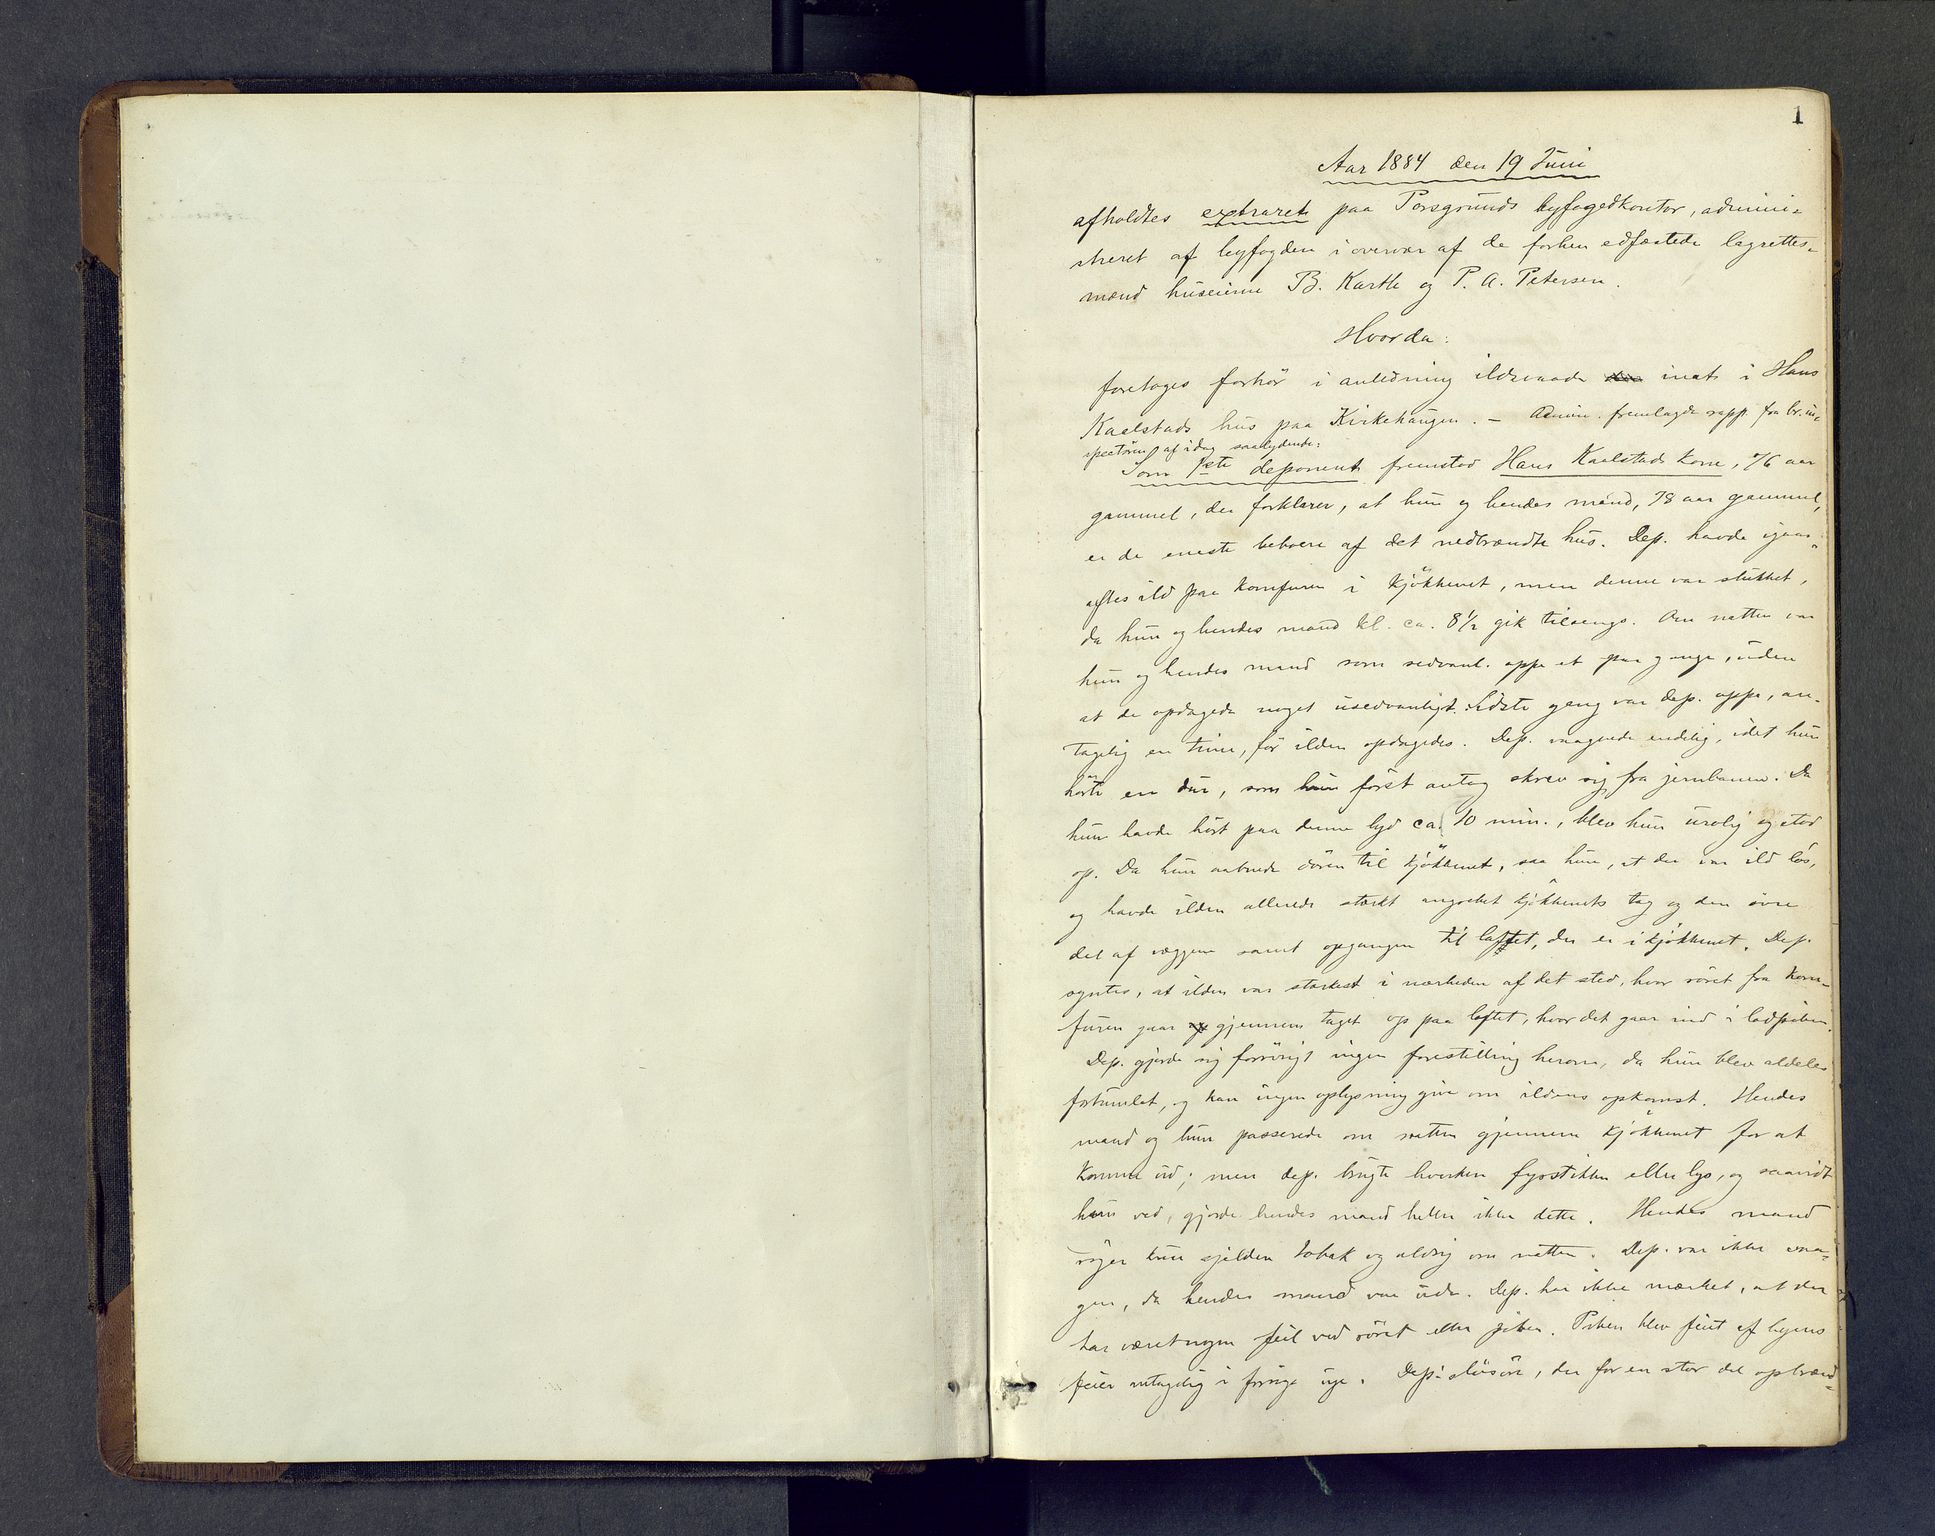 1
Aar 1884 den 19 Juni
afholdtes extraret paa Porsgrunds byfogedkontor, admini-
streret af byfogden i overvær af de forhen edfæstede lagrettes-
mænd huseierne B. Karthe og P. A. Petersen.
Hvorda:
foretoges forhör i anledning ildsvaade inat i Hans
Kaelstads hus paa Kirkehaugen. – Admin. fremlagde rapp. fra br.in-
spectören af idag saalydende:
Som 1ste deponent fremstod Hans Kaelstads kone, 76 aar
gammel, der forklarer, at hun og hendes mand, 78 aar gammel,
er de eneste beboere af det nedbrændte hus. Dep. havde igaar
aftes ild paa komfuren i kjökkenet, men denne var slukket,
da hun og hendes mand kl. ca. 8½ gik tilsengs. Om natten var
hun og hendes mand som sedvanl. oppe et par gange, uden
at de opdagede noget usedvanligt. Sidste gang var dep. oppe, an-
tagelig en time, för ilden opdagedes. Dep. vaagnede endelig, idet hun
hörte en dur, som hun först antog skrev sig fra jernbanen. Da
hun havde hört paa denne lyd ca. 10 min., blev hun urolig og stod
op. Da hun aabnede dören til kjökkenet, saa hun, at der var ild lös,
og havde ilden allerede stærkt angrebet kjökkenets tag og den övre
del af væggene samt opgangen til loftet, der er i kjökkenet. Dep.
syntes, at ilden var stærkest i nærheden af det sted, hvor röret fra kom-
furen gaar gjennem taget op paa loftet, hvor det gaar ind i
Dep. gjorde sig forövrigt ingen forestilling herom, da hun blev aldeles
fortumlet, og kan ingen oplysning give om ildens opkomst. Hendes
mand og hun passerede om natten gjennem kjökkenet for at
komme ud; men dep. brugte hverken fyrstikker eller lys, og saavidt
hun ved, gjorde hendes mand heller ikke dette. Hendes mand
röger kun sjelden tobak og aldrig om natten. Dep. var ikke vaa-
gen, da hendes mand var ude. Dep. har ikke mærket, at der
har været nogen feil ved röret eller piben. Piben blev feiet af byens
feier antagelig i forrige uge. Dep.s lösöre, der for en stor del opbrænd-